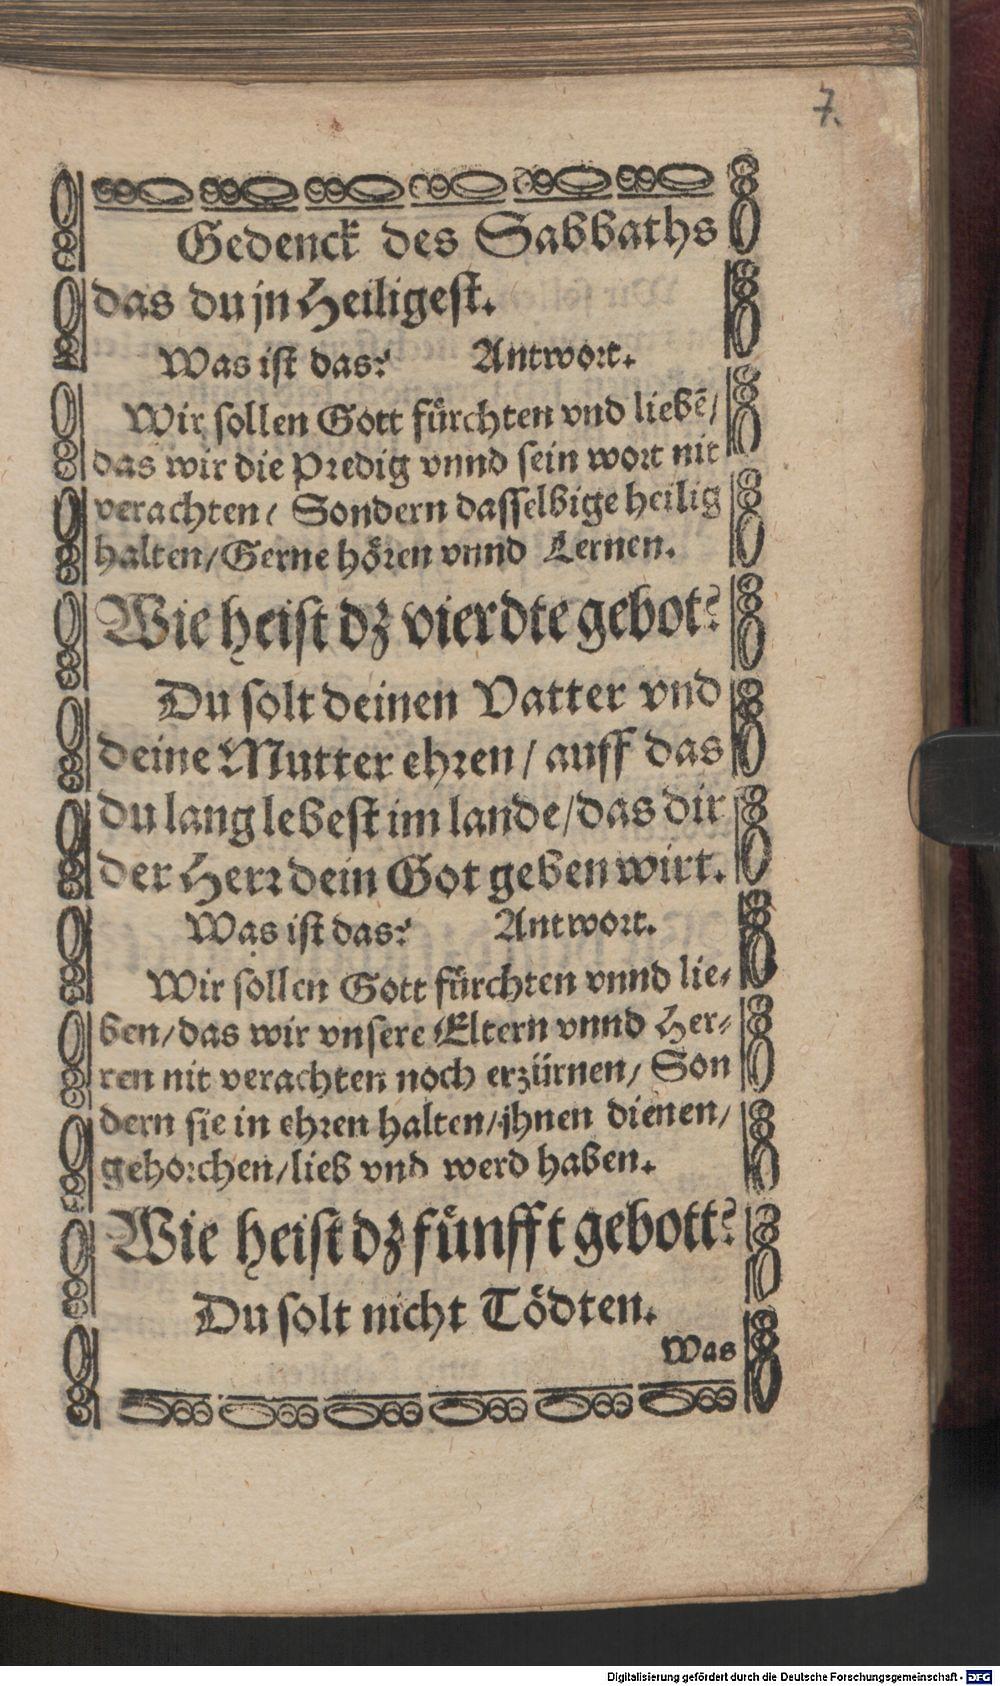 7.
Gedenck des Sabbaths
das du jn Heiligest.
Was ist das? Antwort.
Wir sollen Gott fürchten vnd liebē/
das wir die Predig vnnd sein wort nit
verachten/ Sondern dasselbige heilig
halten/Gerne hören vnnd Lernen.
Wie heist dz vierdte gebot?
Du solt deinen Vatter vnd
deine Mutter ehren/ auff das
du lang lebest im lande/das dir
der Herr dein Got geben wirt.
Was ist das? Antwort.
Wir sollen Gott fürchten vnnd lie-
ben/das wir vnsere Eltern vnnd Her-
ren nit verachten noch erzürnen/ Son
dern sie in ehren halten/ihnen dienen/
gehorchen/lieb vnd werd haben.
Wie heist dz fünfft gebott?
Du solt nicht Tödten.
Was
Digitalisierung gefördert durch die Deutsche Forschungsgemeinschaft - DFG